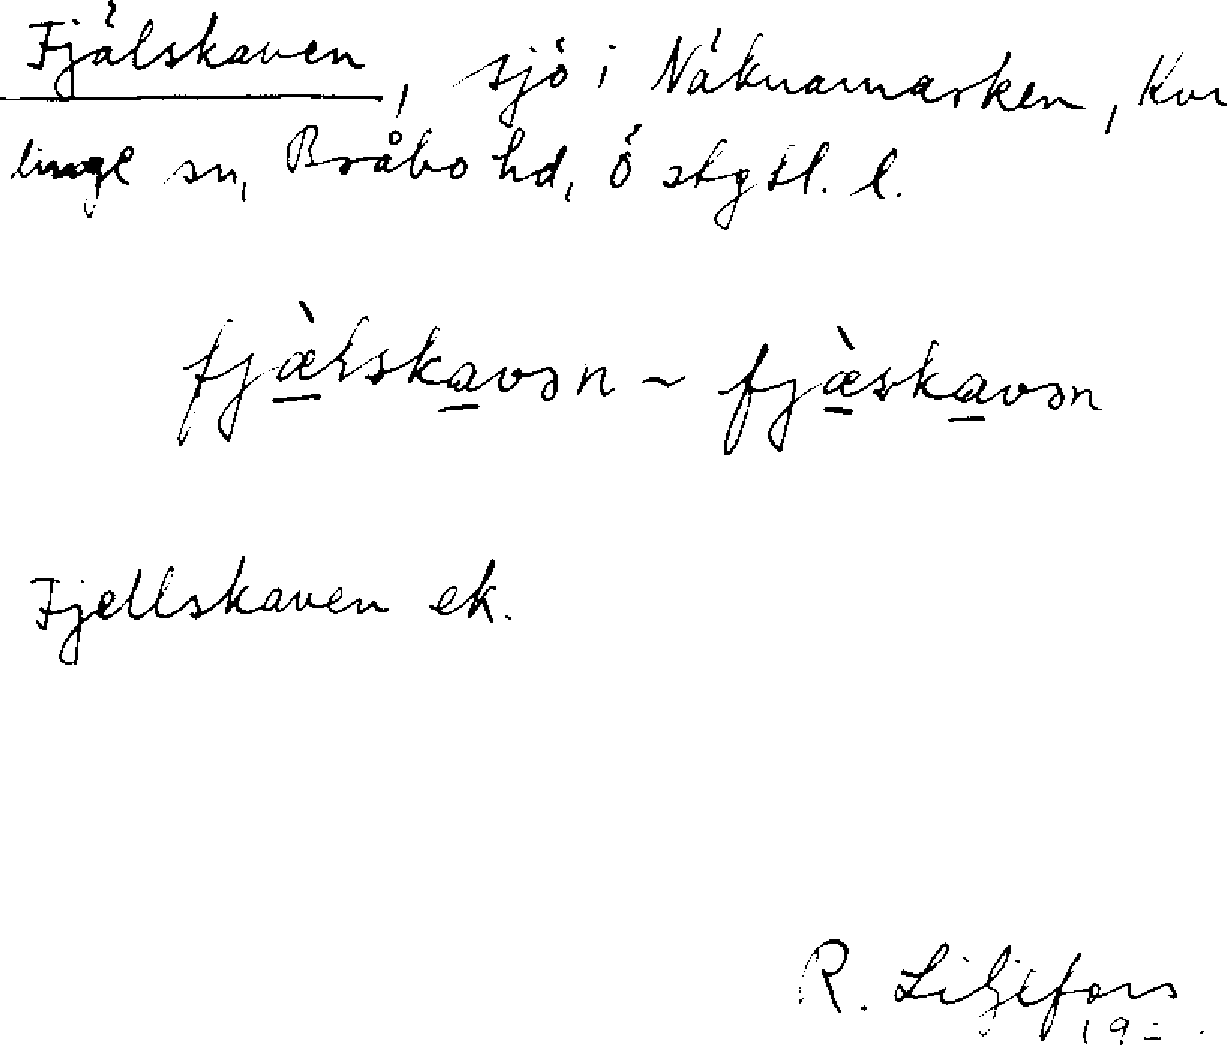 Fjälskaven, sjö i Näknamarken, Kvil
linge sn, Bråbo hd, Östgtl. l.
fjæ̀lskavən ~ fjæ̀skavən
Fjellskaven ek.
R. Liljefors